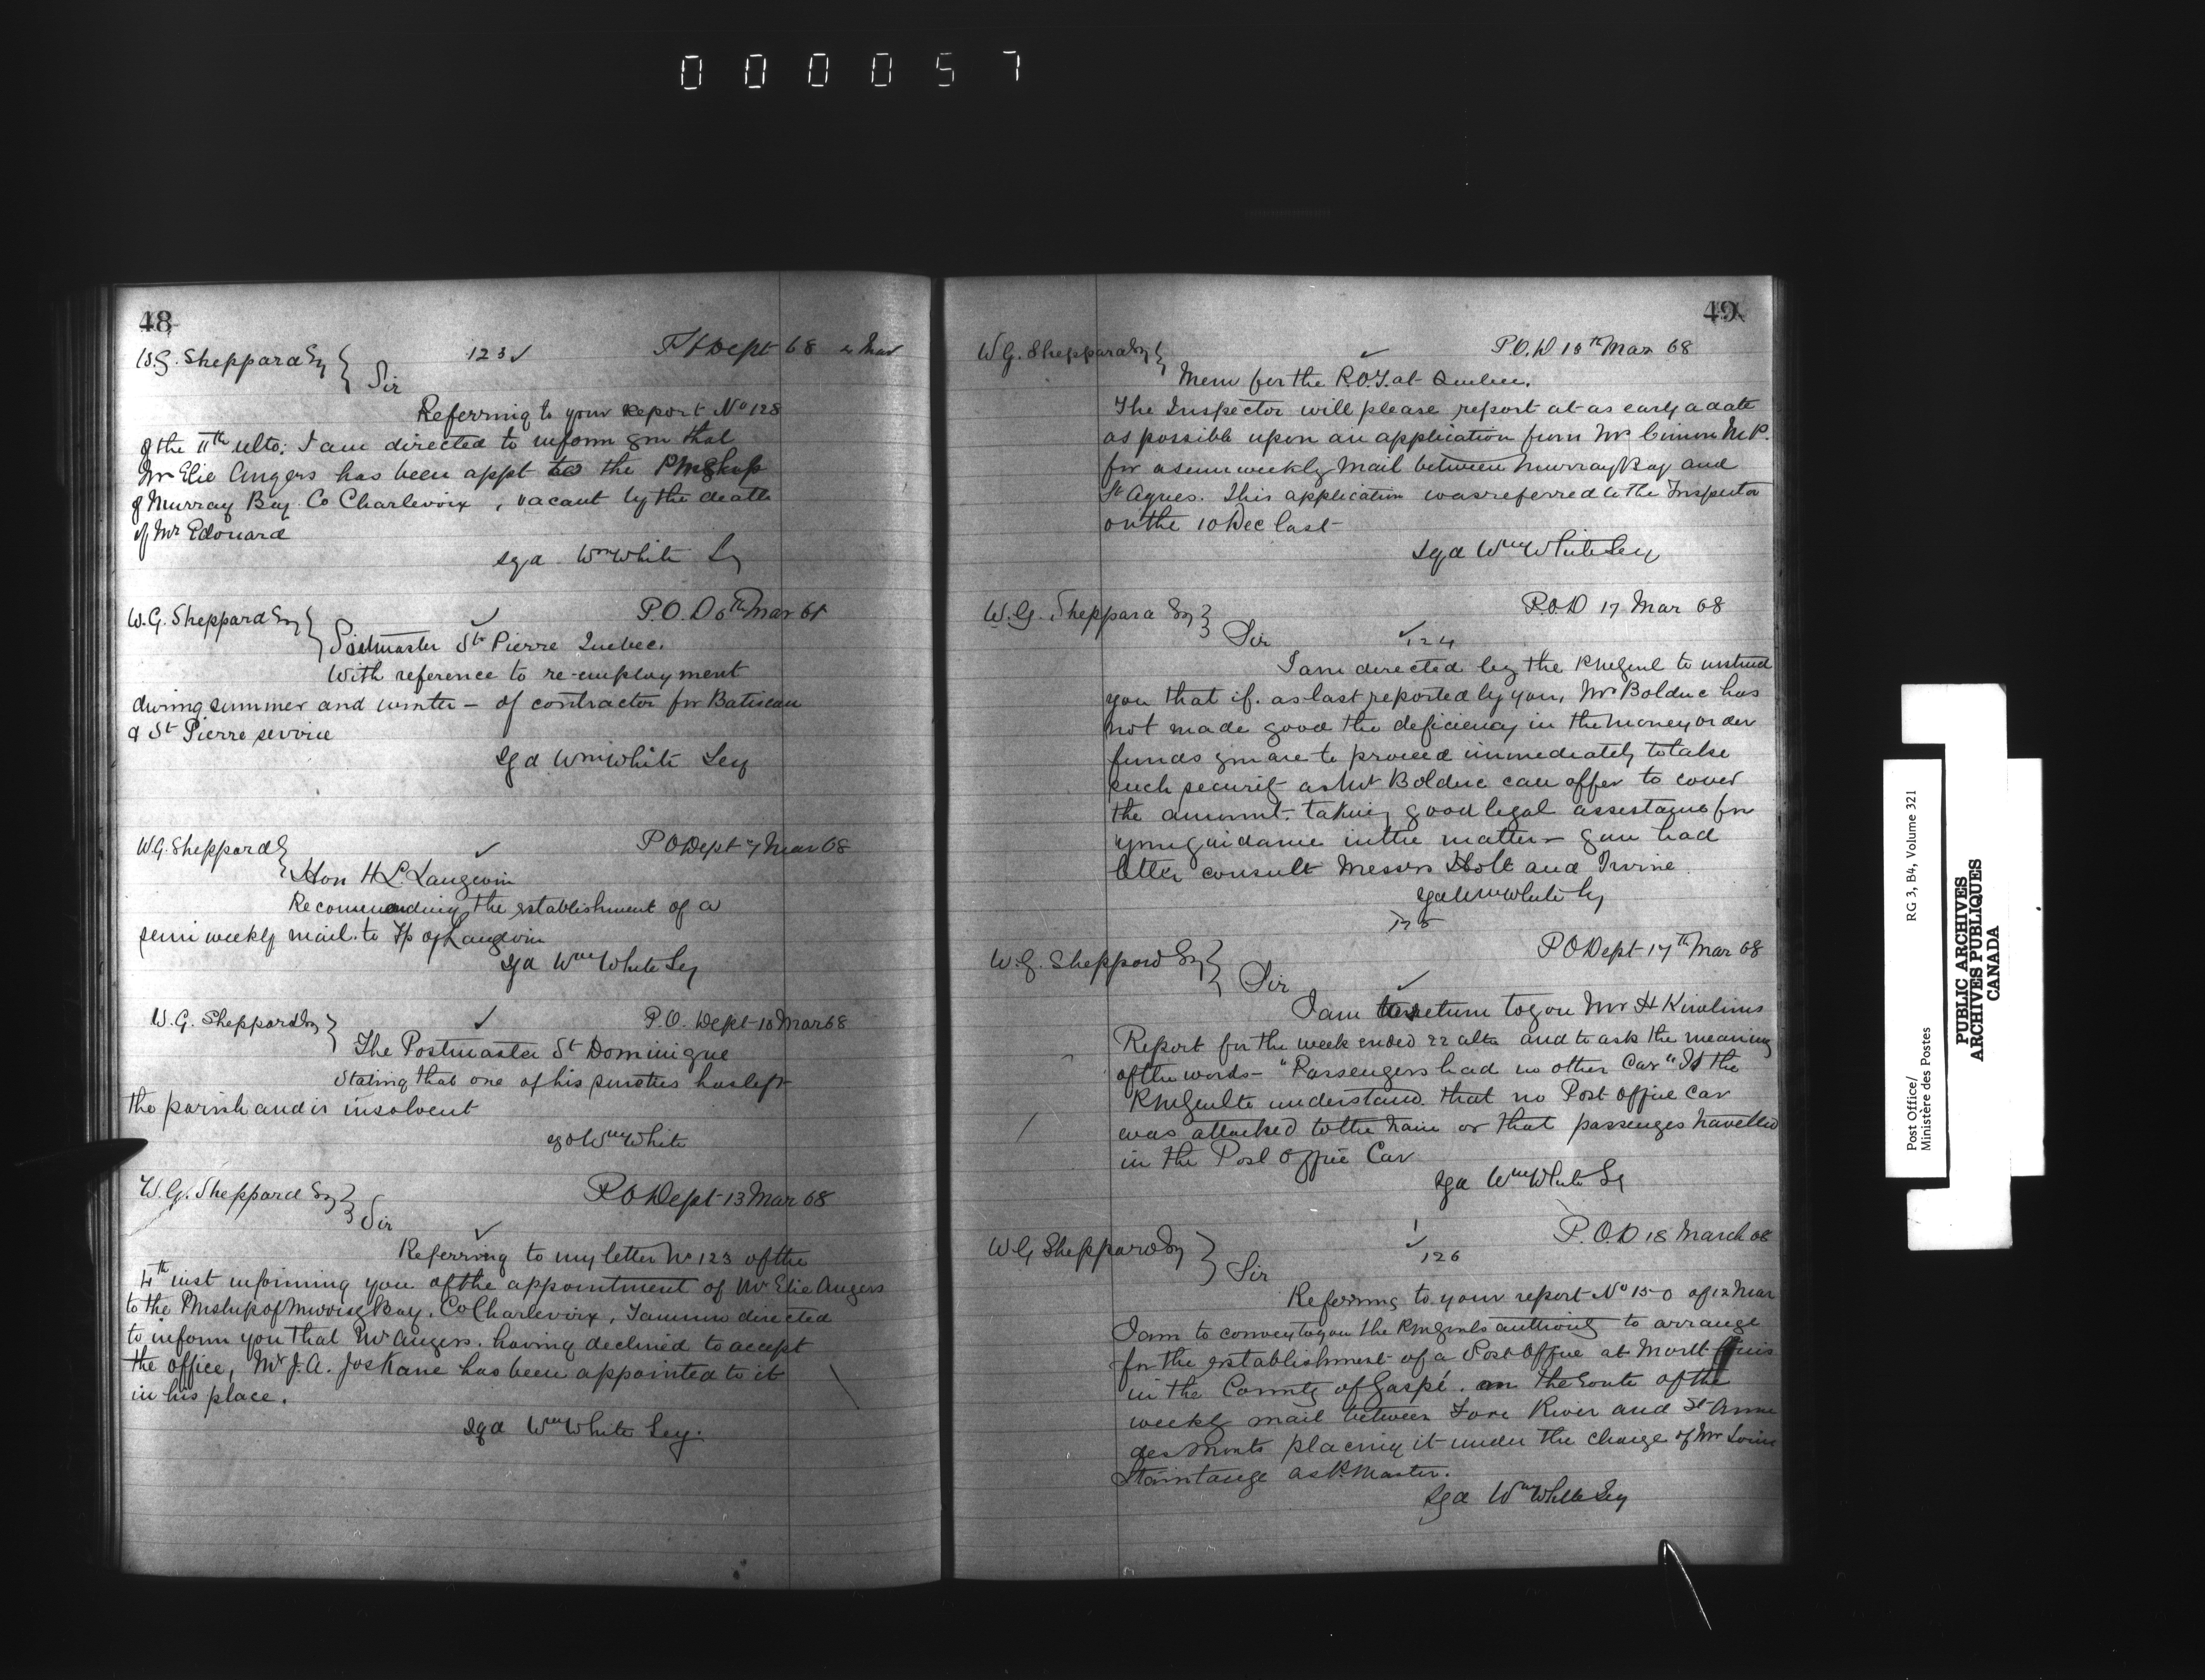 000057
48
W.G. Sheppard Esq
123 ✓
P O Dept 68 4 Mar
Sir
Referring to your report No 128
of the 11th ulto: I am directed to inform you that
Mr Elie Angers has been appt to the PMship
of Murray Bay Co Charlevoix, vacant by the death
of Mr Edouard
sgd Wm White Sy
W.G. Sheppard Esq
✓
P.O.D 6th Mar 68
Postmaster St Pierre Quebec.
With reference to re-employment
during summer and winter – of contractor for Batiscan
& St Pierre service
Sgd Wm White Secy
W.G. Sheppard
✓
P O Dept 7 Mar 68
Hon H L. Langevin
Recommending the establishment of a
semi weekly mail to Tp of Langevin
Sgd Wm White Secy
W.G. Sheppard Esq
✓
P.O. Dept 10 Mar 68
The Postmaster St Dominique
Stating that one of his sureties has left
the parish and is insolvent
sgd Wm White
W.G. Sheppard Esq
P O Dept 13 Mar 68
Sir
✓
Referring to my letter No 123 of the
4th inst informing you of the appointment of Mr Elie Angers
to the PMship of Murray Bay, Co Charlevoix, I am directed
to inform you that Mr Angers, having declined to accept
the office, Mr J.A. Jos Kane has been appointed to it
in his place.
sgd Wm White Secy.
49
W G. Sheppard Esq
✓
P.O.D 13th Mar 68
Mem for the P.O.I. at Quebec.
The Inspector will please report at as early a date
as possible upon an application from Mr Cimon M.P.
for a semi weekly Mail between Murray Bay and
St Agnes. This application was referred to the Inspector
on the 10 Dec last
Sgd Wm White Secy
W.G. Sheppard Esq
P.O.D 17 Mar 68
Sir
✓ 124
I am directed by the PMGenl to instruct
you that if, as last reported by you, Mr Bolduc has
not made good the deficiency in the money order
funds you are to proceed immediately to take
such security as Mr Bolduc can offer to cover
the amount. taking good legal assistance for
your guidance in the matter – you had
better consult Messrs Holt and Irvine
sgd Wm White Sy
125
W.G. Sheppard Esq
P O Dept 17th Mar 68
Sir
✓
I am to return to you Mr H
Report for the week ended 22 ulto and to ask the meaning
of the words – "Passengers had no other Car" Is the
PMGenl to understand that no Post Office Car
was attached to the train or that passengers travelled
in the Post Office Car
Sgd Wm White Sy
W G Sheppard Esq
✓
126
P.O.D 18 March 68
Sir
Referring to your report No 150 of 12 Mar
I am to convey to you the PMGenls authority to arrange
for the establishment of a Post Office at Mont Louis
in the County of Gaspé. on the route of the
weekly mail between Fox River and St Anne
des Monts placing it under the charge of Mr Louis
as P.Master.
Sgd Wm White Secy
Post Office/
Ministère des Postes
RG 3, B4, Volume 321
PUBLIC ARCHIVES
ARCHIVES PUBLIQUES
CANADA